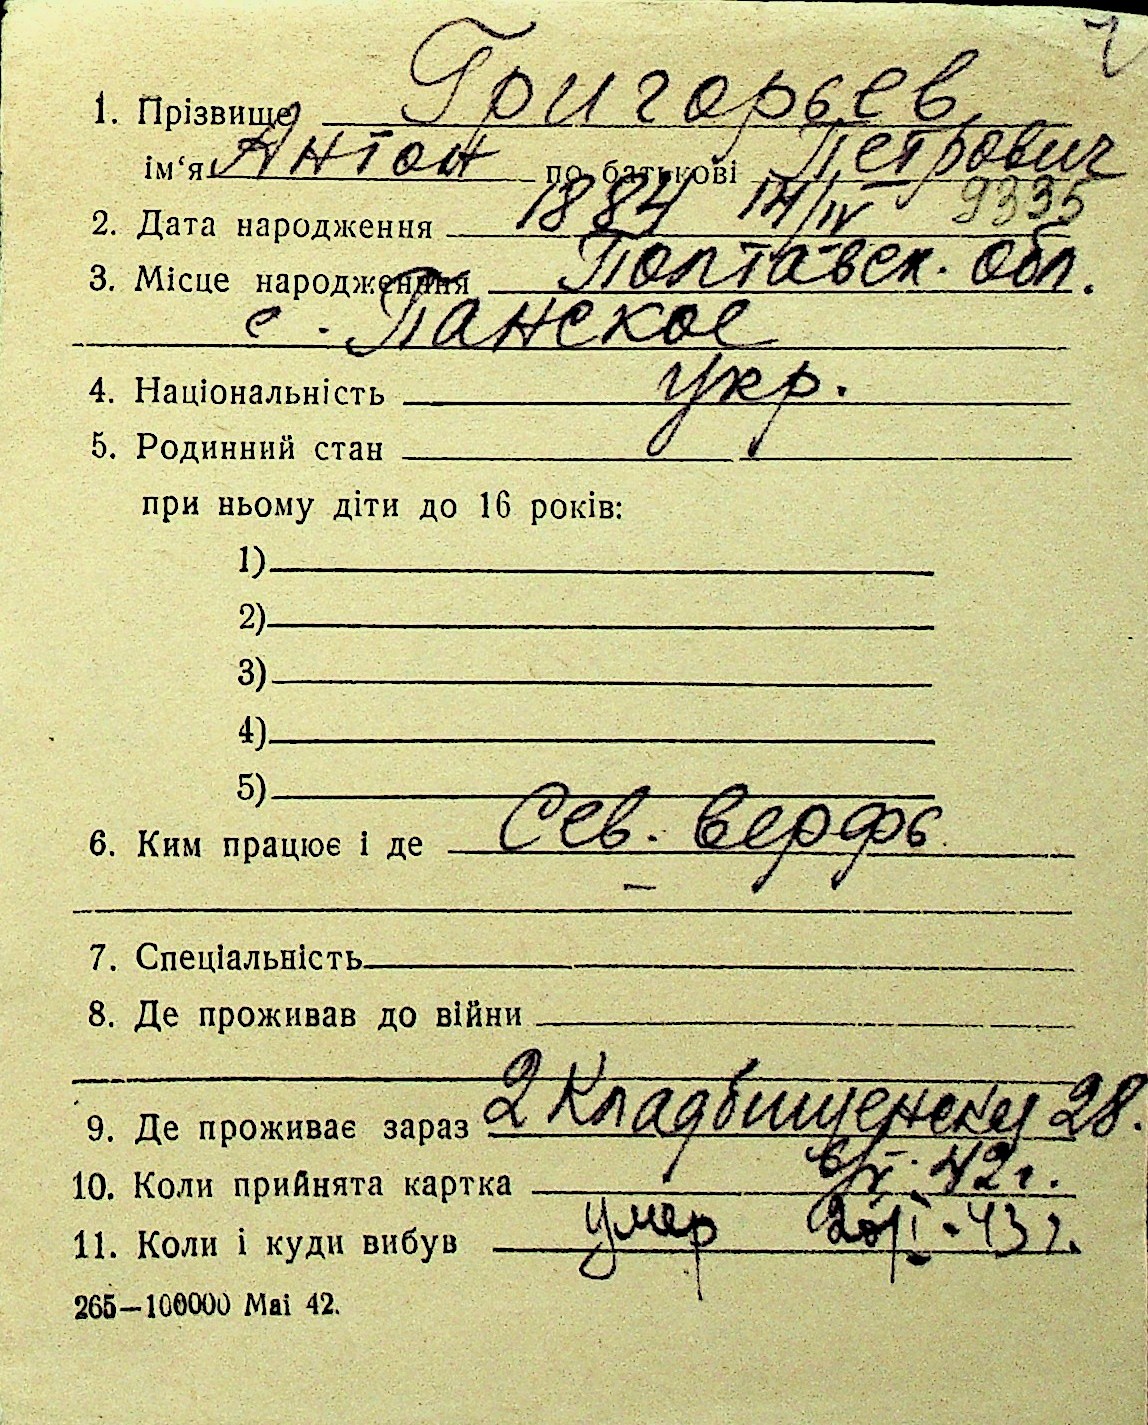 1. Прізвище Григорьев
ім‘я Антон по батькові Петрович
9335
2. Дата народження 1884 14/IV
3. Місце народження Полтавск. обл.
с. Панское
4. Національність укр.
5. Родинний стан
при ньому діти до 16 років:
1)
2)
3)
4)
5)
6. Ким працює і де Сев. верфь
7. Спеціальність
8. Де проживав до війни
9. Де проживає зараз 2 Кладбищенская 28.
10. Коли прийнята картка 42 г.
11. Коли і куди вибув умер 43 г.
265—100000 Mai 42.